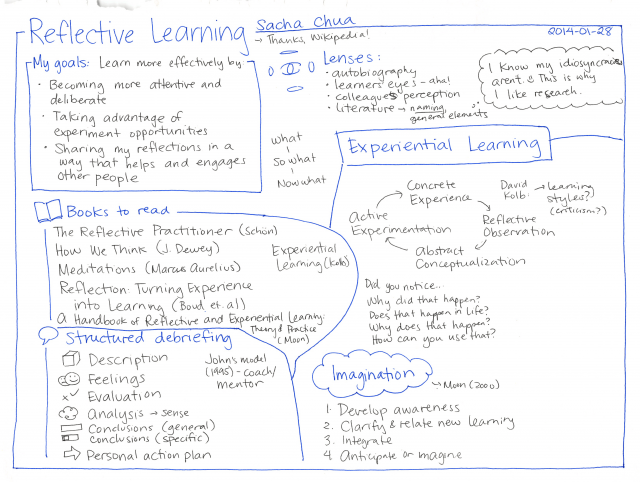 Reflective Learning
Sacha Chua
→ Thanks, Wikipedia!
2014-01-28
My goals: Learn more effectively by:
• Becoming more attentive and
deliberate
• Taking advantage of
experiment opportunities
• Sharing my reflections in a
way that helps and engages
other people
Lenses:
• autobiography
• learners' eyes - aha!
• colleagues perception
• literature → naming,
general elements
I know my idiosyncracies
aren't. This is why
I like research.
What
So what
Now what
Experiential Learning
Concrete
Experience
Reflective
Observation
Abstract
Conceptualization
Active
Experimentation
David
Kolb
→ learning
styles?
(criticism?)
Did you notice...
Why did that happen?
Does that happen in life?
Why does that happen?
How can you use that?
Books to read
The Reflective Practitioner (Schön)
How We Think (J. Dewey)
Meditations (Marcus Aurelius)
Reflection: Turning Experience
into Learning (Boud et. al)
A Handbook of Reflective and Experiential Learning:
Theory & Practice
(Moon)
Experiential
Learning (Kolb)
Structured debriefing
Description
Feelings
Evaluation
Analysis → sense
Conclusions (general)
conclusions (specific)
Personal action plan
John's model
(1995) - coach/
mentor
Imagination
→ Moon (2000)
1. Develop awareness
2. Clarify & relate new learning
3. Integrate
4. Anticipate or imagine